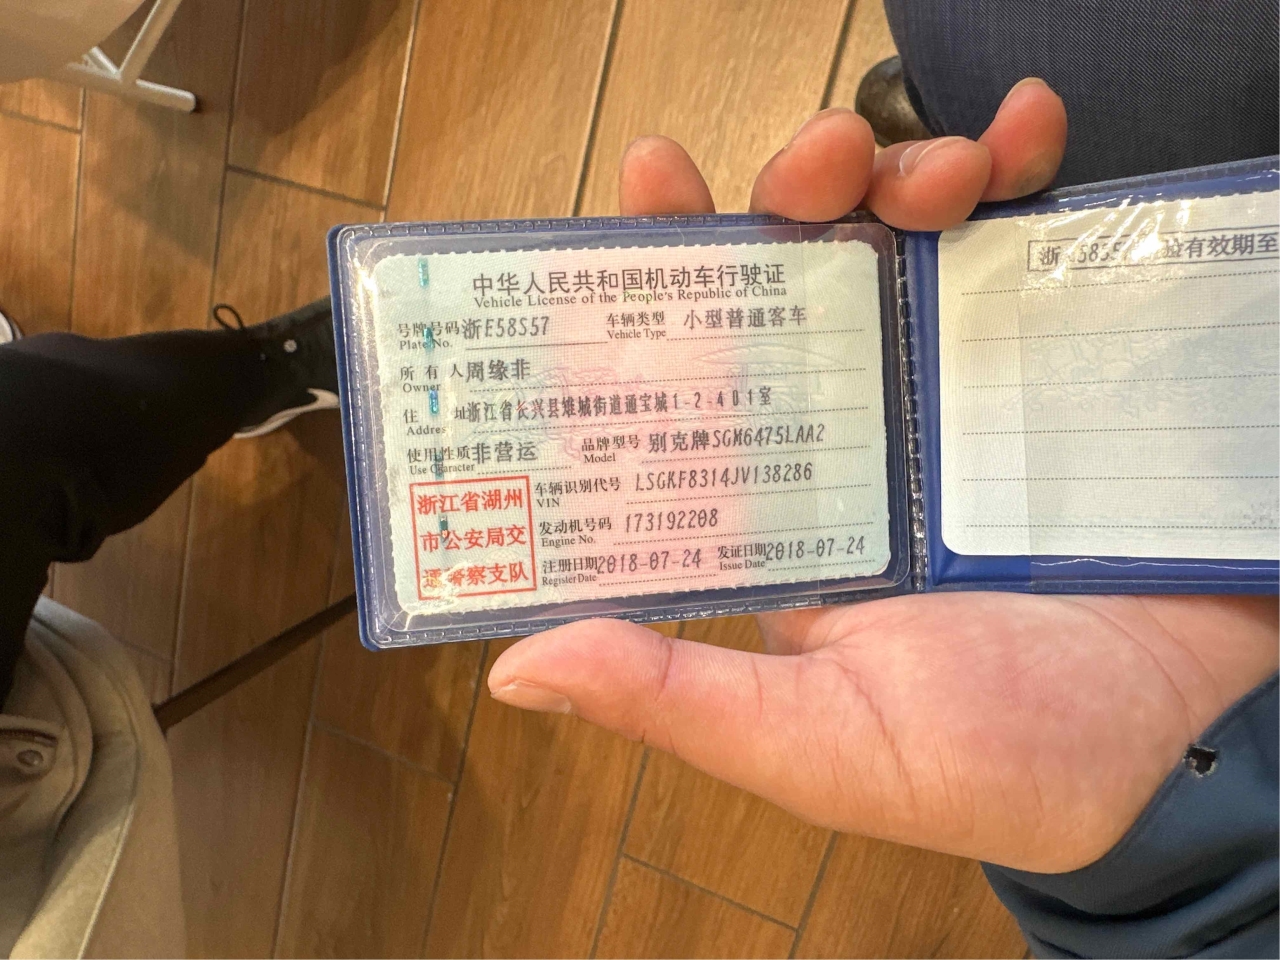 中华人民共和国机动车行驶证
Vehicle License of the People's Republic of China
号牌号码 浙E58S57 车辆类型 小型普通客车
Plate No. Vehicle Type
所有人 周缘非
Owner
住址 浙江省长兴县雉城街道通宝城1-2-401室
Address
使用性质 非营运 品牌型号 别克牌SGM6475LAA2
Use Character Model
车辆识别代号 LSGKF8314JV138286
VIN
发动机号码 173192208
Engine No.
注册日期 2018-07-24 发证日期 2018-07-24
Register Date Issue Date
浙江省湖州
市公安局交
通警察支队
浙 58S57 验有效期至